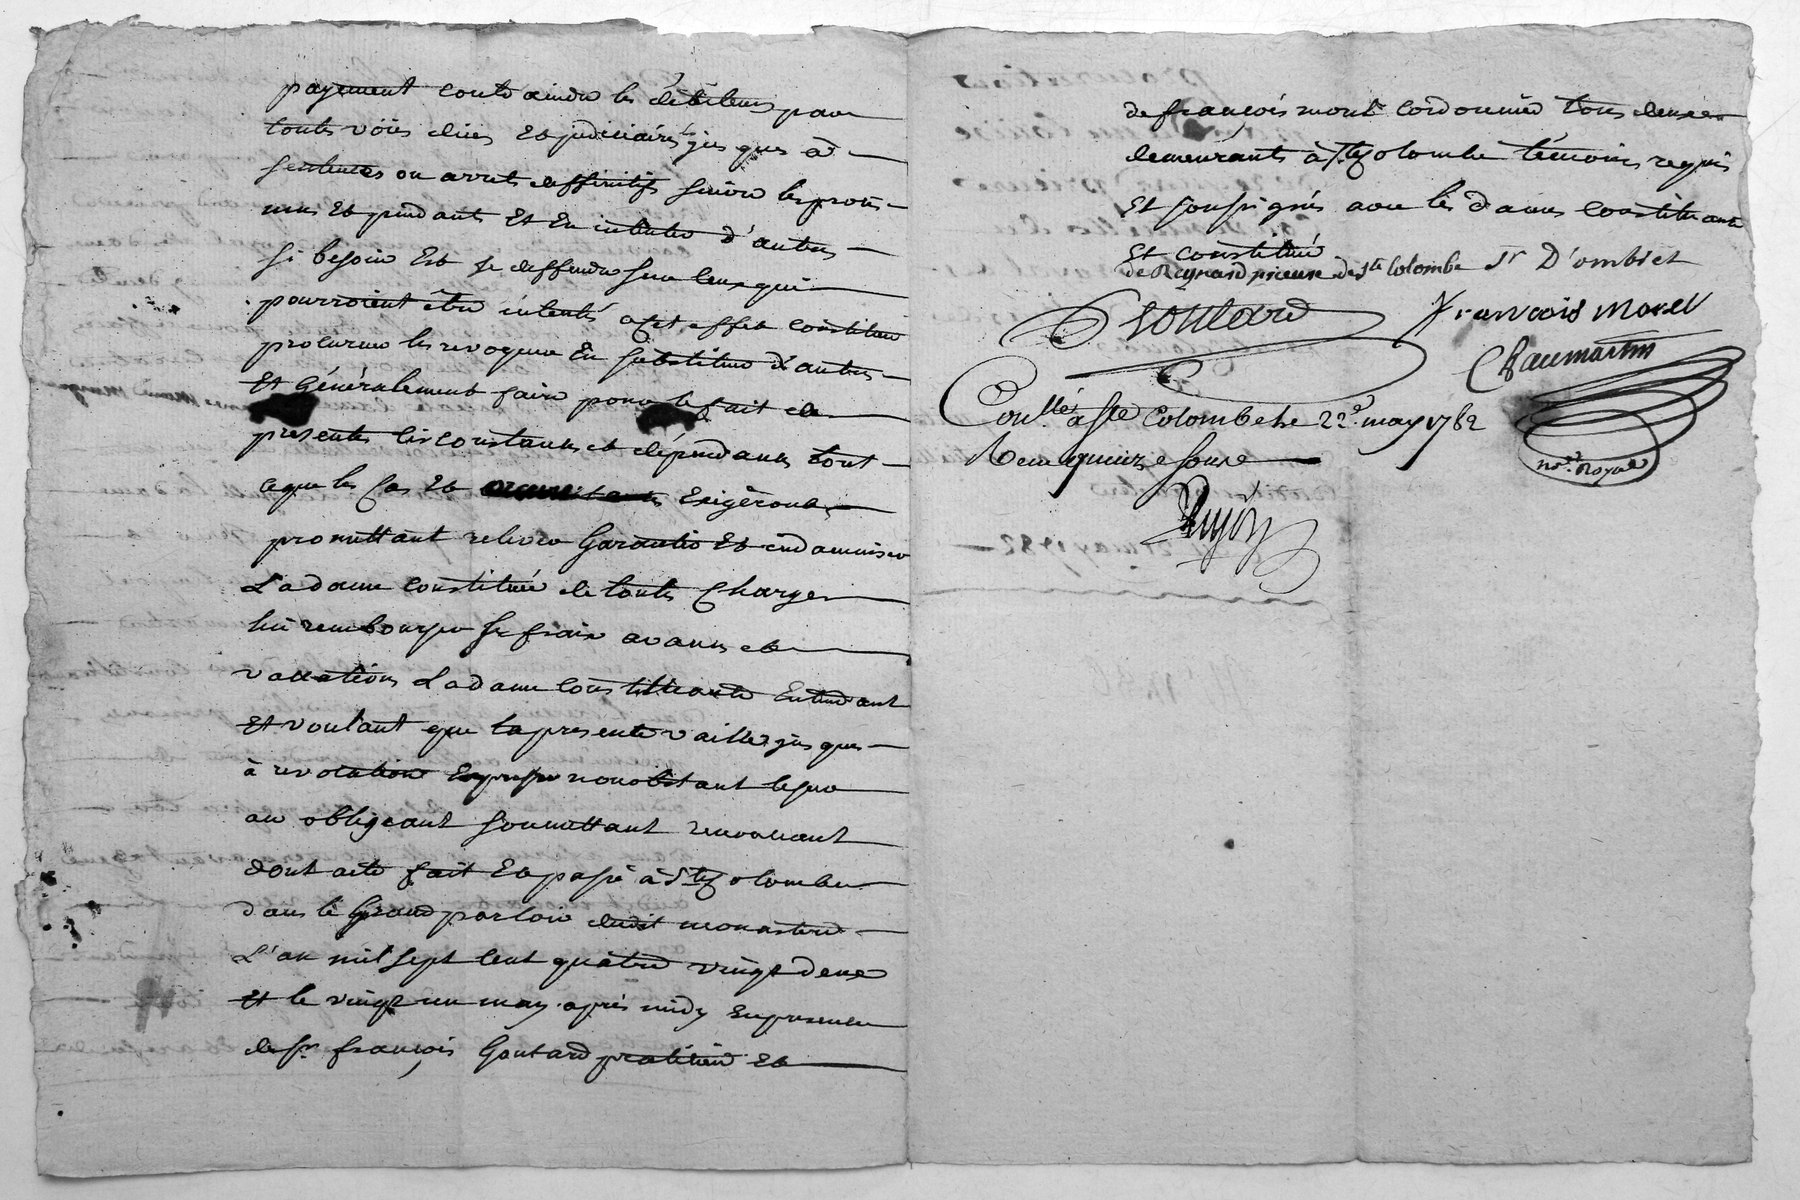 payement contraindre les débiteurs pour
toutes voies dües et judiciaires jus ques a
sentences ou arrets deffinitifs suivre les procés
nuës et pendants et en intenter d'autres
si besoin est se deffendre sur ceux qui
pourroient être intentés a cet effet constituer
procureur les revoquer en substituer d'autres
et généralement faire pour le fait de
presentes circonstances et dépendances tout
ce que les cas et exigéront
promettant relever garantir et indamniser
Ladame constituée de toutes charges
lui rembourser ses frais avances et
vacations Ladame constituante entendant
et voulant que la presente vaille jus ques
à revocation expresse nonobstant le sur
an obligeant soumettant renonceant
dont acte fait et passé à Ste Colombe
dans le Grand parloir dudit monastere
L'an mil sept cent quatre vingt deux
et le vingt un may après midy en presence
de Sr françois Goutard praticien et
de françois morel cordonnier tous deux
demeurants à Ste Colombe témoins requis
et soussignés avec les dames constituante
et constituée
de Reynard prieure de Ste Colombe Sr D'ombiet
Goutard François Morel
Chaumartin
nore Royal
Conllé à Ste Colombe le 22e may 1782
Reçu quinze sous